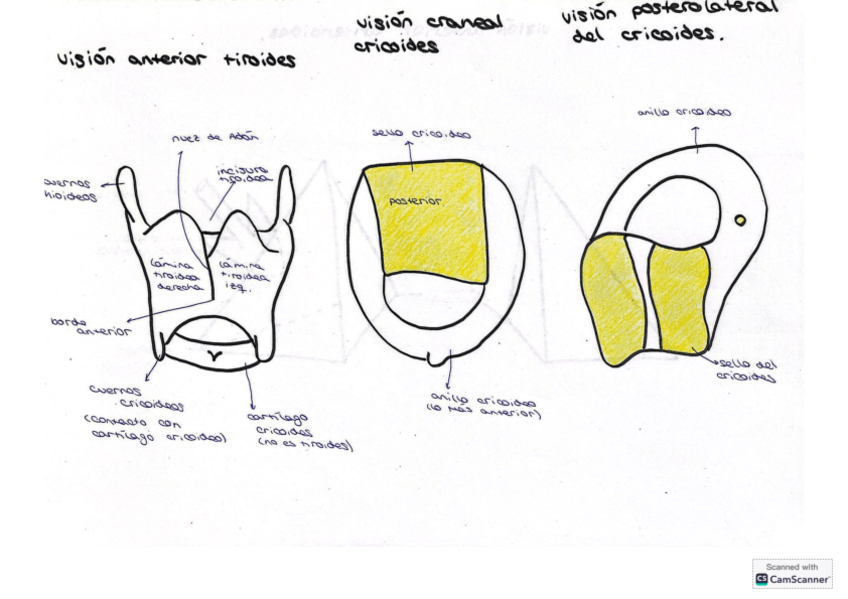 visión anterior tiroides
visión craneal
cricoides
visión posterolateral
del cricoides.
nuez de Adán
incisura
tiroidea
cuernos
hioideos
lámina
tiroidea
derecha
lámina
tiroidea
izq.
borde
anterior
cuernos
cricoideos
(contacto con
cartílago cricoideo)
cartílago
cricoides
(no es tiroides)
sello cricoideo
posterior
anillo cricoideo
(lo más anterior)
anillo cricoideo
sello del
cricoides
Scanned with
CS CamScanner